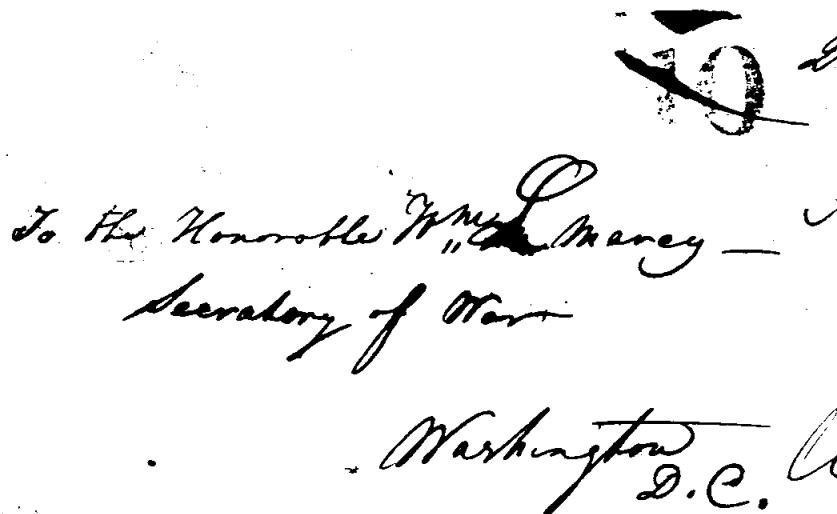 10
To the Honorable Wm L Marcy —
Secretary of War
Washington
D.C.